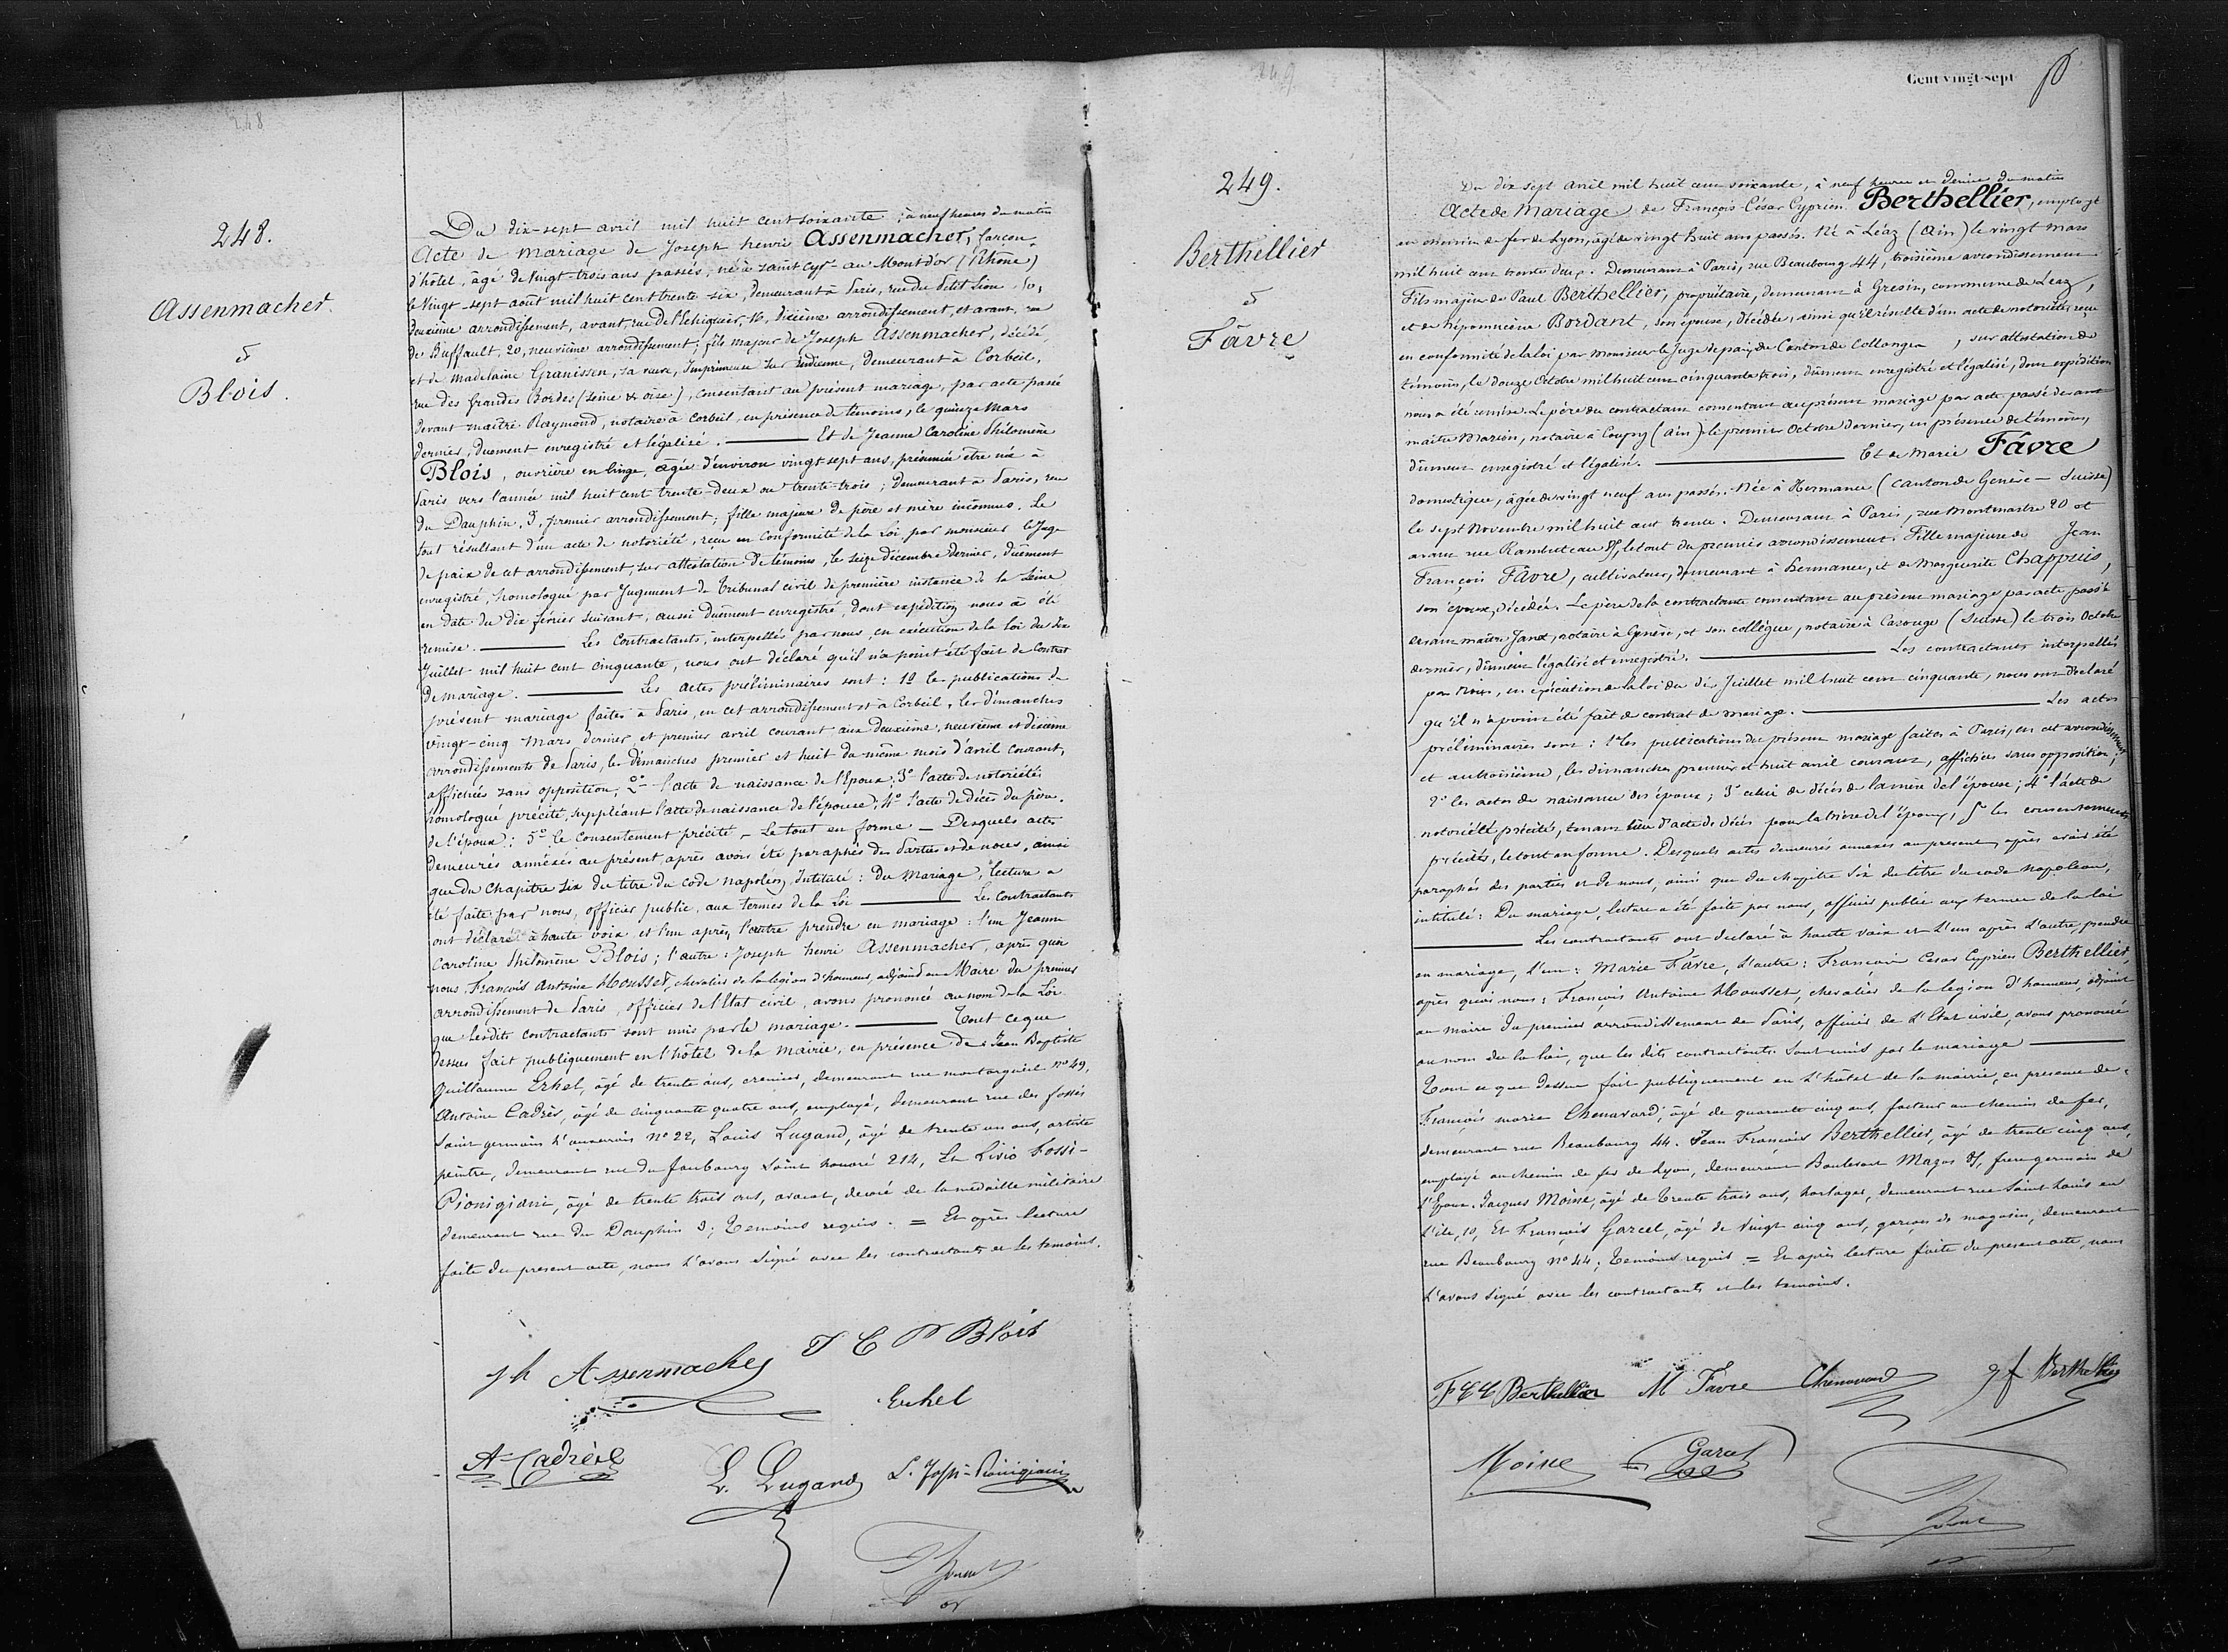 248
248.
Assenmacher.
et
Blois.
Du dix-sept avril mil huit cent soixante, à neuf heures du matin
Acte de mariage de Joseph henri Assenmacher, garçon
d'hôtel, âgé de vingt-trois ans passés, né à Saint Cyr-au Mont d'or (Rhône)
le vingt-sept août mil huit cent trente six, demeurant à Paris, rue du Petit Lion, 10,
deuxième arrondissement, avant, rue de l'Echiquier, 16, dixième arrondissement, et avant, rue
de Buffault, 20, neuvième arrondissement; fils majeur de Joseph Assenmacher, décédé,
et de Madelaine Granissen, sa veuve, Imprimeuse sur indienne, demeurant à Corbeil,
rue des Grandes Bordes (Seine & oise), consentant au présent mariage, par acte passé
devant maître Raymond, notaire à Corbeil, en présence de témoins, le quinze Mars
dernier, duement enregistré et légalisé. — Et de Jeanne Caroline Philomène
Blois, ouvrière en linge, âgée d'environ vingt sept ans, présumée être née à
Paris vers l'année mil huit cent trente-deux ou trente-trois; demeurant à Paris, rue
du Dauphin, 3, premier arrondissement; fille majeure de père et mère inconnus. Le
tout résultant d'un acte de notoriété, reçu en conformité de la Loi par monsieur le Juge
de paix de cet arrondissement, sur attestation de témoins, le seize décembre dernier, dûement
enregistré, homologué par Jugement du Tribunal civil de première instance de la Seine
en date du dix février suivant, aussi dûement enregistré, dont expédition nous a été
remise. — Les Contractants, interpellés par nous, en exécution de la loi du dix
Juillet mil huit cent cinquante, nous ont déclaré qu'il n'a point été fait de Contrat
de mariage. — Les actes préliminaires sont: 1º les publications du
présent mariage faites à Paris, en cet arrondissement et à Corbeil, les dimanches
vingt-cinq Mars dernier et premier avril courant aux deuxième, neuvième et dixième
arrondissements de Paris, les dimanches premier et huit du même mois d'avril courant,
affichées sans opposition; 2º l'acte de naissance de l'Epoux; 3º l'acte de notoriété
homologué précité, suppléant l'acte de naissance de l'épouse; 4º l'acte de décès du père
de l'époux; 5º le consentement précité - Le tout en forme - Desquels actes
demeurés annexés au présent, après avoir été paraphés des Parties et de nous, ainsi
que du chapitre six du titre du code napoléon, Intitulé: Du Mariage, lecture a
été faite par nous, officier public, aux termes de la Loi — Les Contractants
ont déclaré à haute voix et l'un après l'autre prendre en mariage: l'un Jeanne
Caroline Philomène Blois; l'autre: Joseph henri Assenmacher, après quoi
nous, François Antoine Housset, chevalier de la légion d'honneur, adjoint au Maire du premier
arrondissement de Paris, officier de l'Etat civil, avons prononcé au nom de la Loi
que lesdits contractants sont unis par le mariage. — Tout ce que
dessus fait publiquement en l'hôtel de la Mairie, en présence de: Jean Baptiste
Guillaume Erhel, âgé de trente ans, crémier, demeurant rue montorgueil nº 49,
Antoine Cadrès, âgé de cinquante quatre ans, employé, demeurant rue des fossés
Saint germain l'auxerrois nº 22, Louis Lugand, âgé de trente un ans, artiste
peintre, demeurant rue du faubourg Saint honoré 214, Et Livio Fossi-
Pionigiani, âgé de trente trois ans, avocat, décoré de la médaille militaire
demeurant rue du Dauphin 3; Témoins requis. = Et après lecture
faite du présent acte, nous l'avons signé avec les contractants et les témoins.
Jh Assenmacher J C P Blois
Erhel
A Cadrès L. Lugand L. Fossi-Pionigiani
249
249.
Berthellier
et
Fâvre
Cent vingt-sept
Du dix sept avril mil huit cent soixante, à neuf heures et demie du matin
Acte de Mariage de François César Cyprien Berthellier, employé
au chemin de fer de Lyon, âgé de vingt huit ans passés. Né à Léaz (Ain) le vingt mars
mil huit cent trente deux. Demeurant à Paris, rue Beaubourg 44, troisième arrondissement
Fils majeur de Paul Berthellier, propriétaire, demeurant à Gresin, commune de Leaz,
et de Népomucène Bordant, son épouse, décédée, ainsi qu'il résulte d'un acte de notoriété, reçu
en conformité de la loi par monsieur le Juge de paix du Canton de Collonges, sur attestation de
témoins, le douze Octobre mil huit cent cinquante trois, dûment enregistré et légalisé, dont expédition
nous a été remise. Le père du contractant consentant au présent mariage par acte passé devant
maître Marion, notaire à Coupy (Ain) le premier Octobre dernier, en présence de témoins,
dûment enregistré et légalisé. — Et de Marie Fâvre
domestique, âgée de vingt neuf ans passés. Née à Hermance (canton de Genève - Suisse)
le sept Novembre mil huit cent trente. Demeurant à Paris, rue Montmartre 20 et
avant rue Rambuteau, le tout du premier arrondissement. Fille majeure de Jean
François Fâvre, cultivateur, demeurant à hermance, et de Marguerite Chappuis,
son épouse, décédée. Le père de la contractante consentant au présent mariage par acte passé
devant maître Janot, notaire à Genève, et son collègue, notaire à Carouge (Suisse) le trois Octobre
dernier, dûment légalisé et enregistré. — Les contractants interpellés
par Nous, en exécution de la loi du dix Juillet mil huit cent cinquante, nous ont déclaré
qu'il n'a point été fait de contrat de mariage. — Les actes
préliminaires sont: 1º les publications du présent mariage faites à Paris, en cet arrondissement
et au troisième, les dimanches premier et huit avril courant, affichées sans opposition;
2º les actes de naissance des époux; 3º celui de décès de la mère de l'épouse; 4º l'acte de
notoriété précité, tenant lieu d'acte de décès pour la mère de l'époux, 5º les consentements
précités, le tout en forme. Desquels actes demeurés annexés au présent, après avoir été
paraphés des parties et de nous, ainsi que du chapitre Six du titre du code Napoléon,
intitulé: Du mariage, lecture a été faite par nous, officier public aux termes de la loi
— Les contractants ont déclaré à haute voix et l'un après l'autre, prendre
en mariage, l'un: Marie Fâvre, l'autre: François César Cyprien Berthellier,
après quoi nous: François Antoine Housset, chevalier de la légion d'honneur, adjoint
au maire du premier arrondissement de Paris, officier de l'Etat civil, avons prononcé
au nom de la loi, que les dits contractants sont unis par le mariage —
Tout ce que dessus fait publiquement en l'hôtel de la mairie, en présence de:
François marie Chenavard, âgé de quarante cinq ans, facteur au chemin de fer,
demeurant rue Beaubourg 44. Jean François Berthellier, âgé de trente cinq ans,
employé au chemin de fer de Lyon, demeurant Boulevart Mazas, frère germain de
l'Epoux. Jacques Moine, âgé de trente trois ans, horloger, demeurant rue Saint Louis en
l'ile, 10, Et François Garcel, âgé de vingt cinq ans, garçon de magasin, demeurant
rue Beaubourg nº 44; Témoins requis. = Et après lecture faite du présent acte, nous
l'avons signé avec les contractants et les témoins.
F C C Berthellier M Favre Chenavard J f Berthellier
Moine Garcel